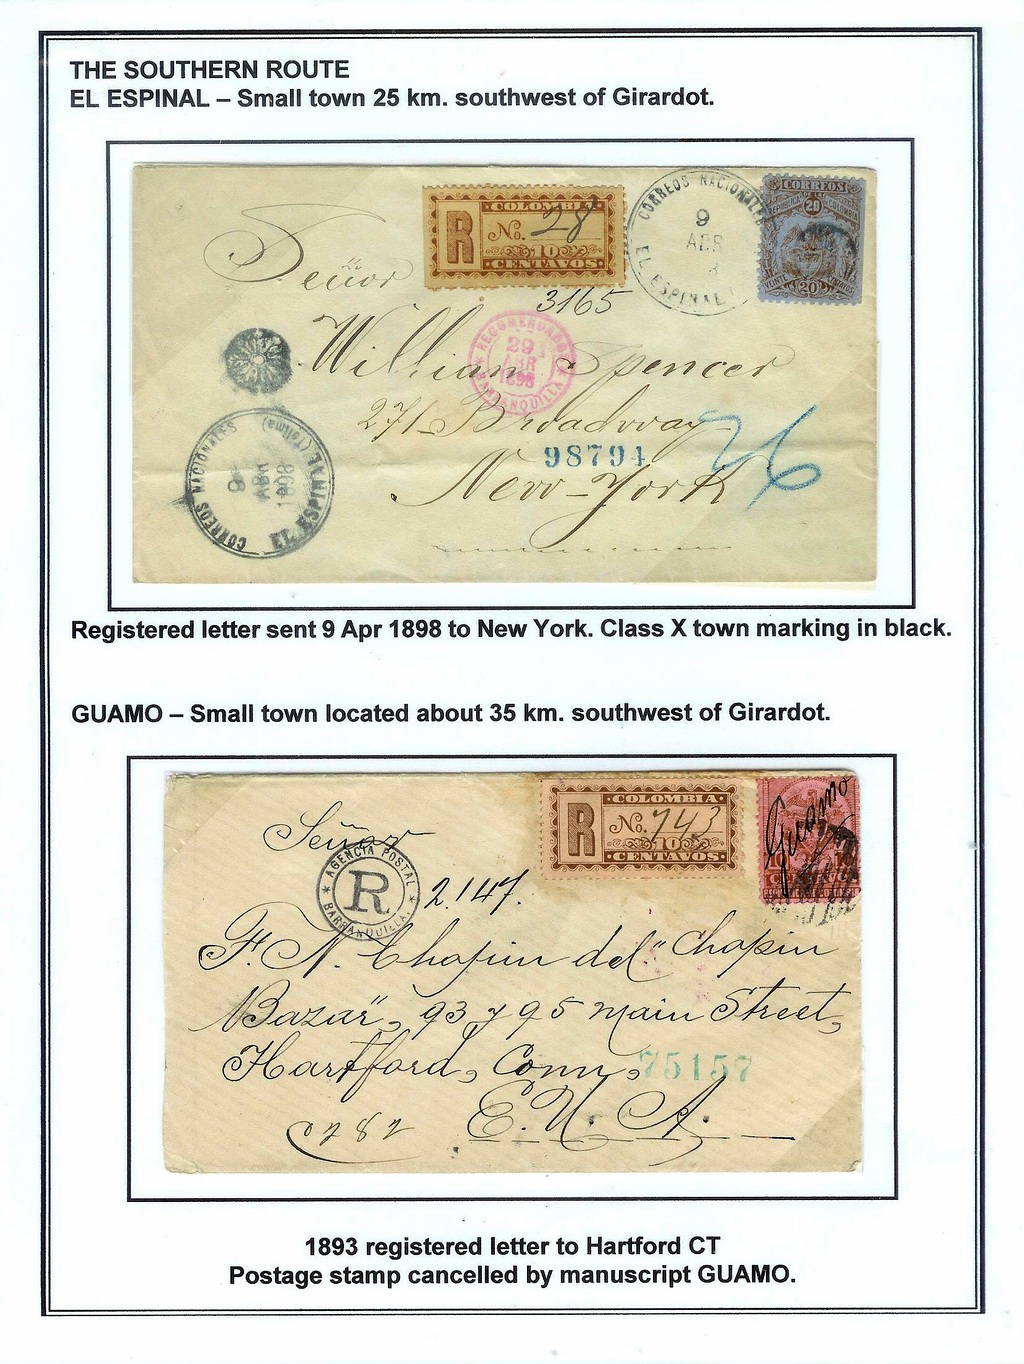 THE SOUTHERN ROUTE
EL ESPINAL – Small town 25 km. southwest of Girardot.
COLOMBIA
R No. 28
10
CENTAVOS
CORREOS NACIONALES
9
ABR
EL ESPINAL
CORREOS
REPUBLICA DE COLOMBIA
20
VEINTE
20
Señor
3165
RECOMENDADO
29
ABR
1898
BARRANQUILLA
William Spencer
271 Broadway
98794
26
New-York
CORREOS NACIONALES
9
ABR
1898
EL ESPINAL (Tolima)
Registered letter sent 9 Apr 1898 to New York. Class X town marking in black.
GUAMO – Small town located about 35 km. southwest of Girardot.
COLOMBIA
R No. 743
10
CENTAVOS
Guamo
Señor
AGENCIA POSTAL
R
BARRANQUILLA
2.147.
F. N. Chapin del "Chapin
Bazar", 93 y 95 main Street,
Hartford, Conn,
75157
E. U. A.
282
1893 registered letter to Hartford CT
Postage stamp cancelled by manuscript GUAMO.